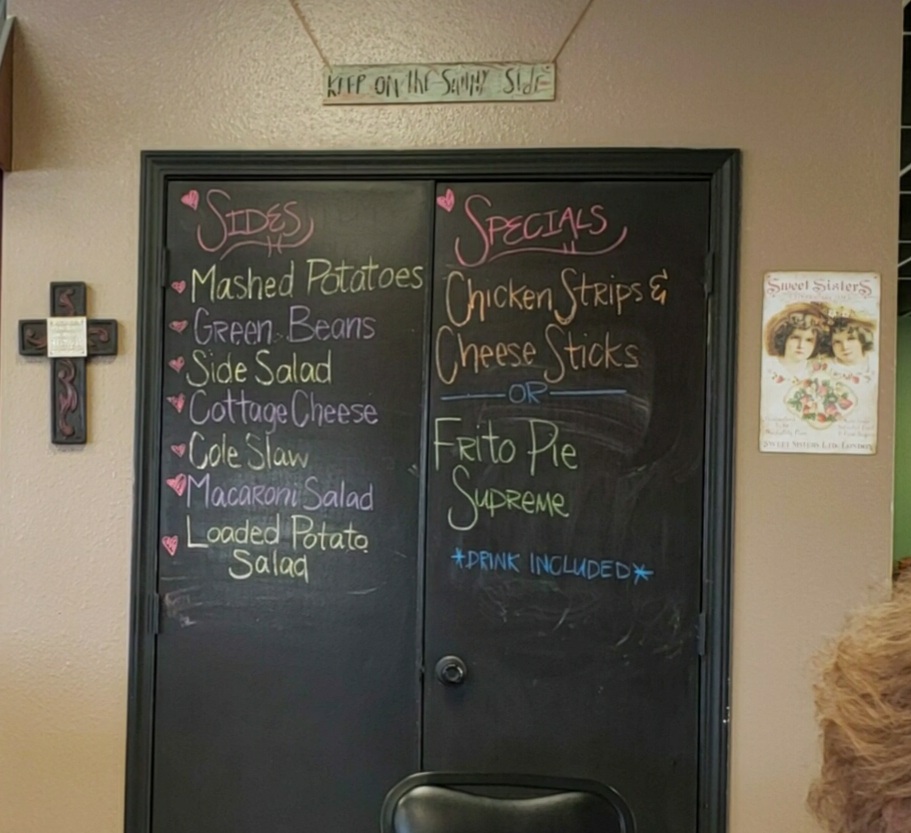 KEEP ON the SUNNY SIdE
SIDES
Mashed Potatoes
Green Beans
Side Salad
Cottage Cheese
Cole Slaw
Macaroni Salad
Loaded Potato
Salad
SPECIALS
Chicken Strips &
Cheese Sticks
OR
Frito Pie
Supreme
*DRINK INCLUDED*
Sweet Sisters
SWEET SISTERS LTD LONDON